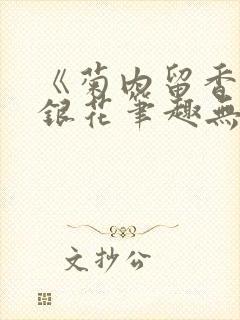 《菊内留香
銀花筆趣無
文抄公